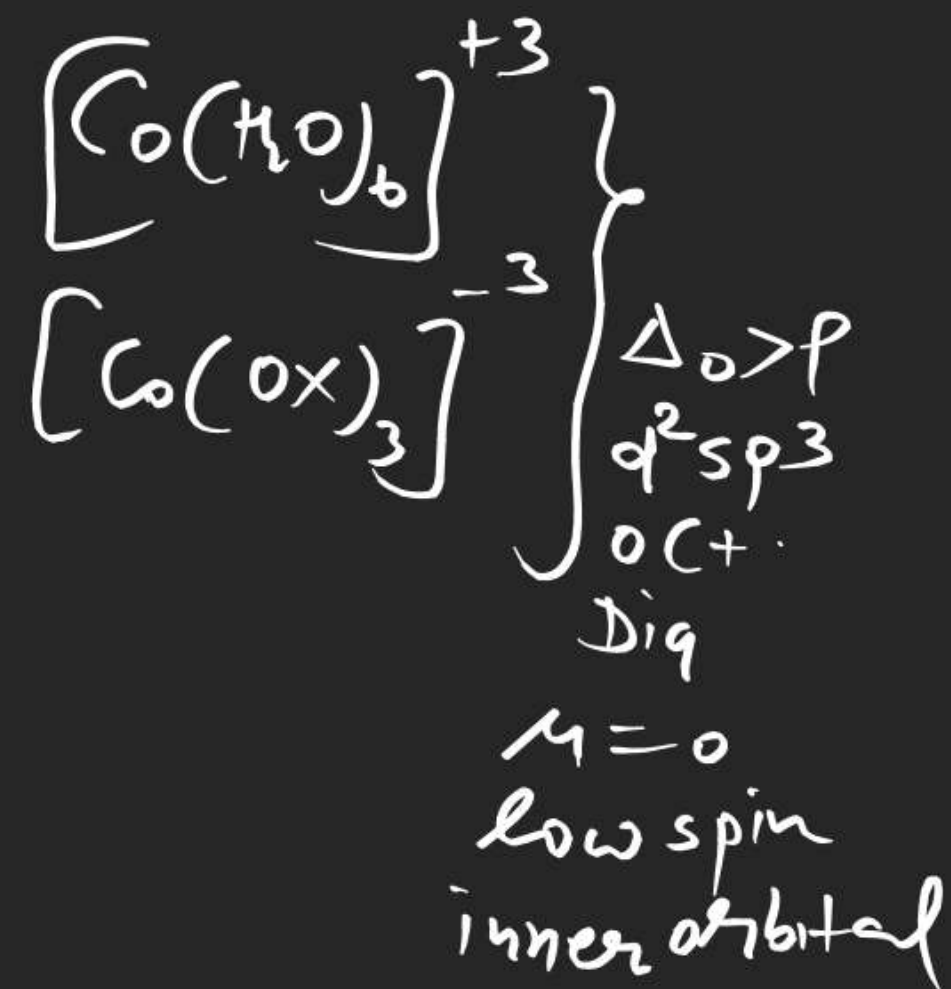 [Co(H2O)6]+3
[Co(ox)3]-3
Δo>P
d²sp3
oct.
Dia
μ=0
low spin
inner orbital